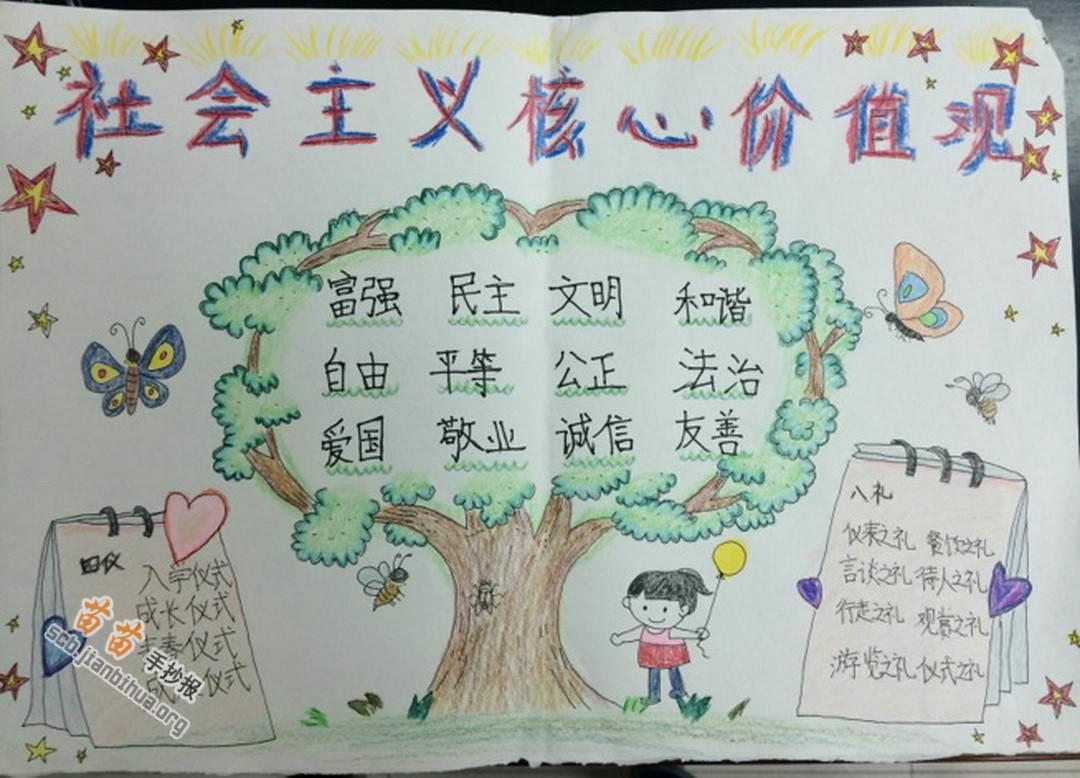 社会主义核心价值观
富强 民主 文明 和谐
自由 平等 公正 法治
爱国 敬业 诚信 友善
四仪
入学仪式
成长仪式
青春仪式
仪式
八礼
仪表之礼 餐饮之礼
言谈之礼 待人之礼
行走之礼 观赏之礼
游览之礼 仪式之礼
苗苗手抄报
scb.jianbihua.org